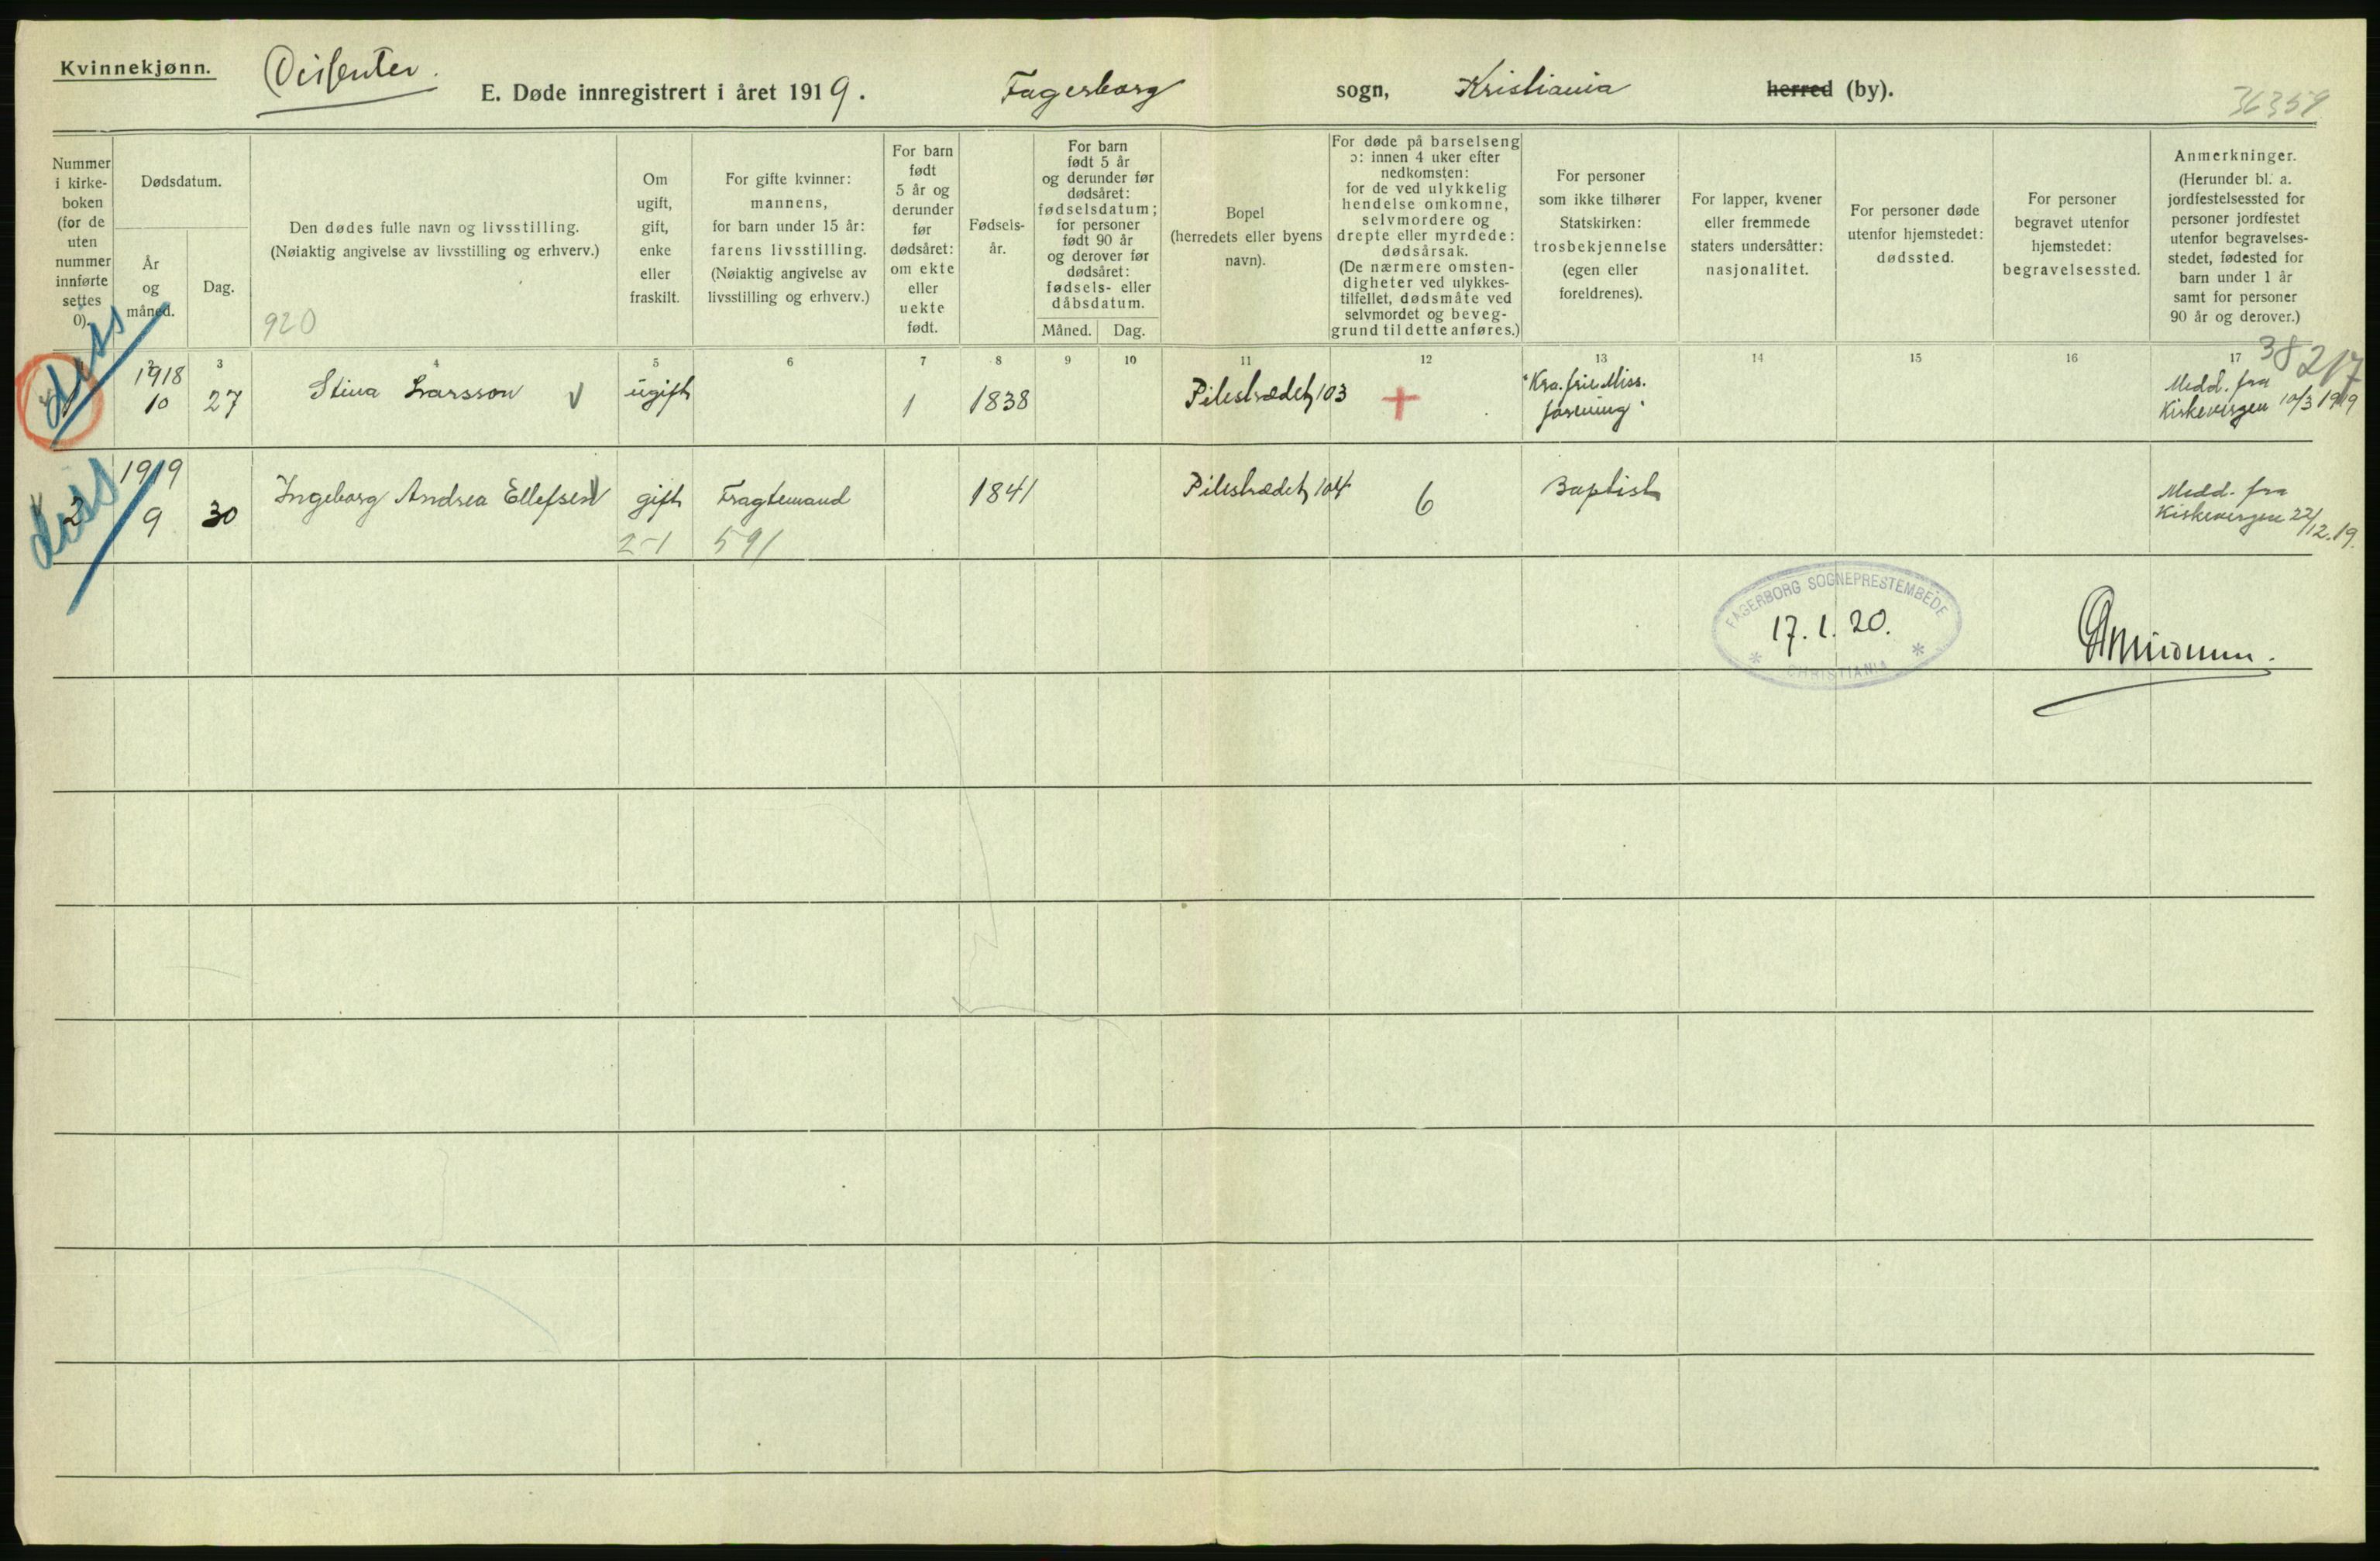 Kvinnekjønn.
Dissenter.
E. Døde innregistrert i året 1919.
Fagerborg sogn, Kristiania herred (by).
36359
Nummer i kirke- boken (for de uten nummer innførte settes 0).
Dødsdatum.
År og måned.
Dag.
Den dødes fulle navn og livsstilling.
(Nøiaktig angivelse av livsstilling og erhverv.)
920
Om ugift, gift, enke eller fraskilt.
For gifte kvinner: mannens, for barn under 15 år: farens livsstilling. (Nøiaktig angivelse av livsstilling og erhverv.)
For barn født 5 år og derunder før dødsåret: om ekte eller uekte født.
Fødsels- år.
For barn født 5 år og derunder før dødsåret: fødselsdatum; for personer født 90 år og derover før dødsåret: fødsels- eller dåbsdatum.
Måned. Dag.
Bopel (herredets eller byens navn).
For døde på barselseng ɔ: innen 4 uker efter nedkomsten: for de ved ulykkelig hendelse omkomne, selvmordere og drepte eller myrdede: dødsårsak. (De nærmere omsten- digheter ved ulykkes- tilfellet, dødsmåte ved selvmordet og beveg- grund til dette anføres.)
For personer som ikke tilhører Statskirken: trosbekjennelse (egen eller foreldrenes).
For lapper, kvener eller fremmede staters undersåtter: nasjonalitet.
For personer døde utenfor hjemstedet: dødssted.
For personer begravet utenfor hjemstedet: begravelsessted.
Anmerkninger. (Herunder bl. a. jordfestelsessted for personer jordfestet utenfor begravelses- stedet, fødested for barn under 1 år samt for personer 90 år og derover.)
2 3 4 5 6 7 8 9 10 11 12 13 14 15 16 17
38217
diss
1918
10 27 Stina Larsson ugift 1 1838 Pilestrædet 103 + "Kra. frie Miss. forening" Medd. fra Kirkevergen 10/3 1919
diss
2 1919
9 30 Ingeborg Andrea Ellefsen gift Fragtemand 1841 Pilestrædet 104 6 Baptist Medd. fra Kirkevergen 22/12.19.
2-1 591
FAGERBORG SOGNEPRESTEMBEDE
17.1.20.
CHRISTIANIA